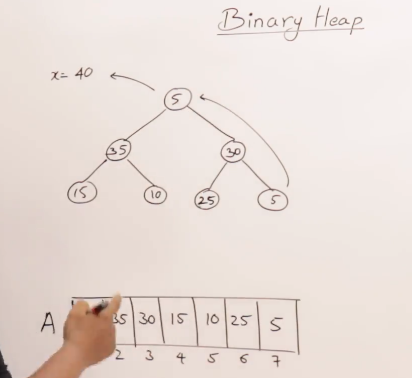 Binary Heap
x= 40
5
35 30
15 10 25 5
A 35 30 15 10 25 5
2 3 4 5 6 7